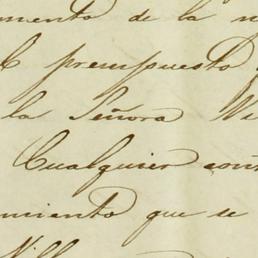 mento de la
presupuesto
la Señora
Cualquier
miento que se